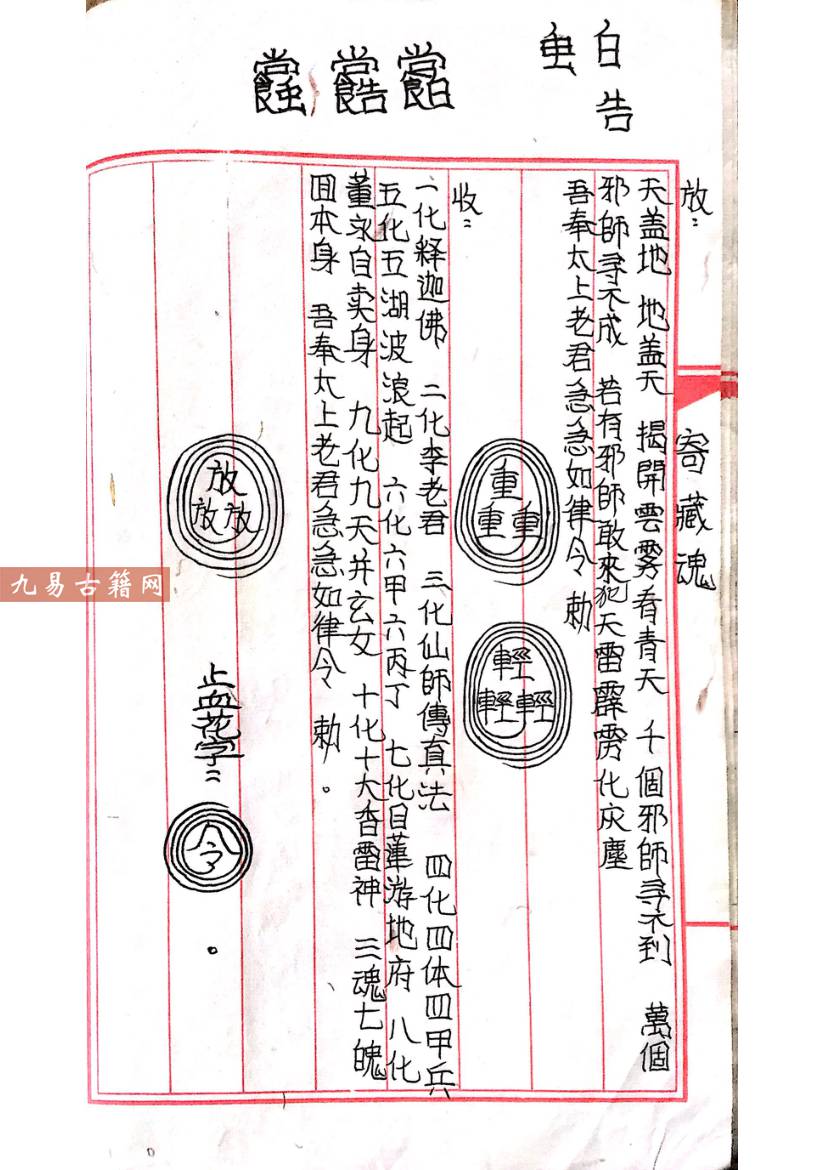 白告
虫
放：
寄藏魂
天盖地 地盖天 揭開雲雾看青天 千個邪師寻不到 萬個
邪師寻不成 若有邪師敢來犯 天雷霹雳化灰塵
吾奉太上老君急急如律令 勅
重
重 重
輕
輕 輕
收：
一化释迦佛 二化李老君 三化仙師傳真法 四化四体四甲兵
五化五湖波浪起 六化六甲六丙丁 七化目莲游地府 八化
董永自卖身 九化九天并玄女 十化十大杳雷神 三魂七魄
囬本身 吾奉太上老君急急如律令 勅。
放
放 放
止血花字：
令
。
九易古籍网